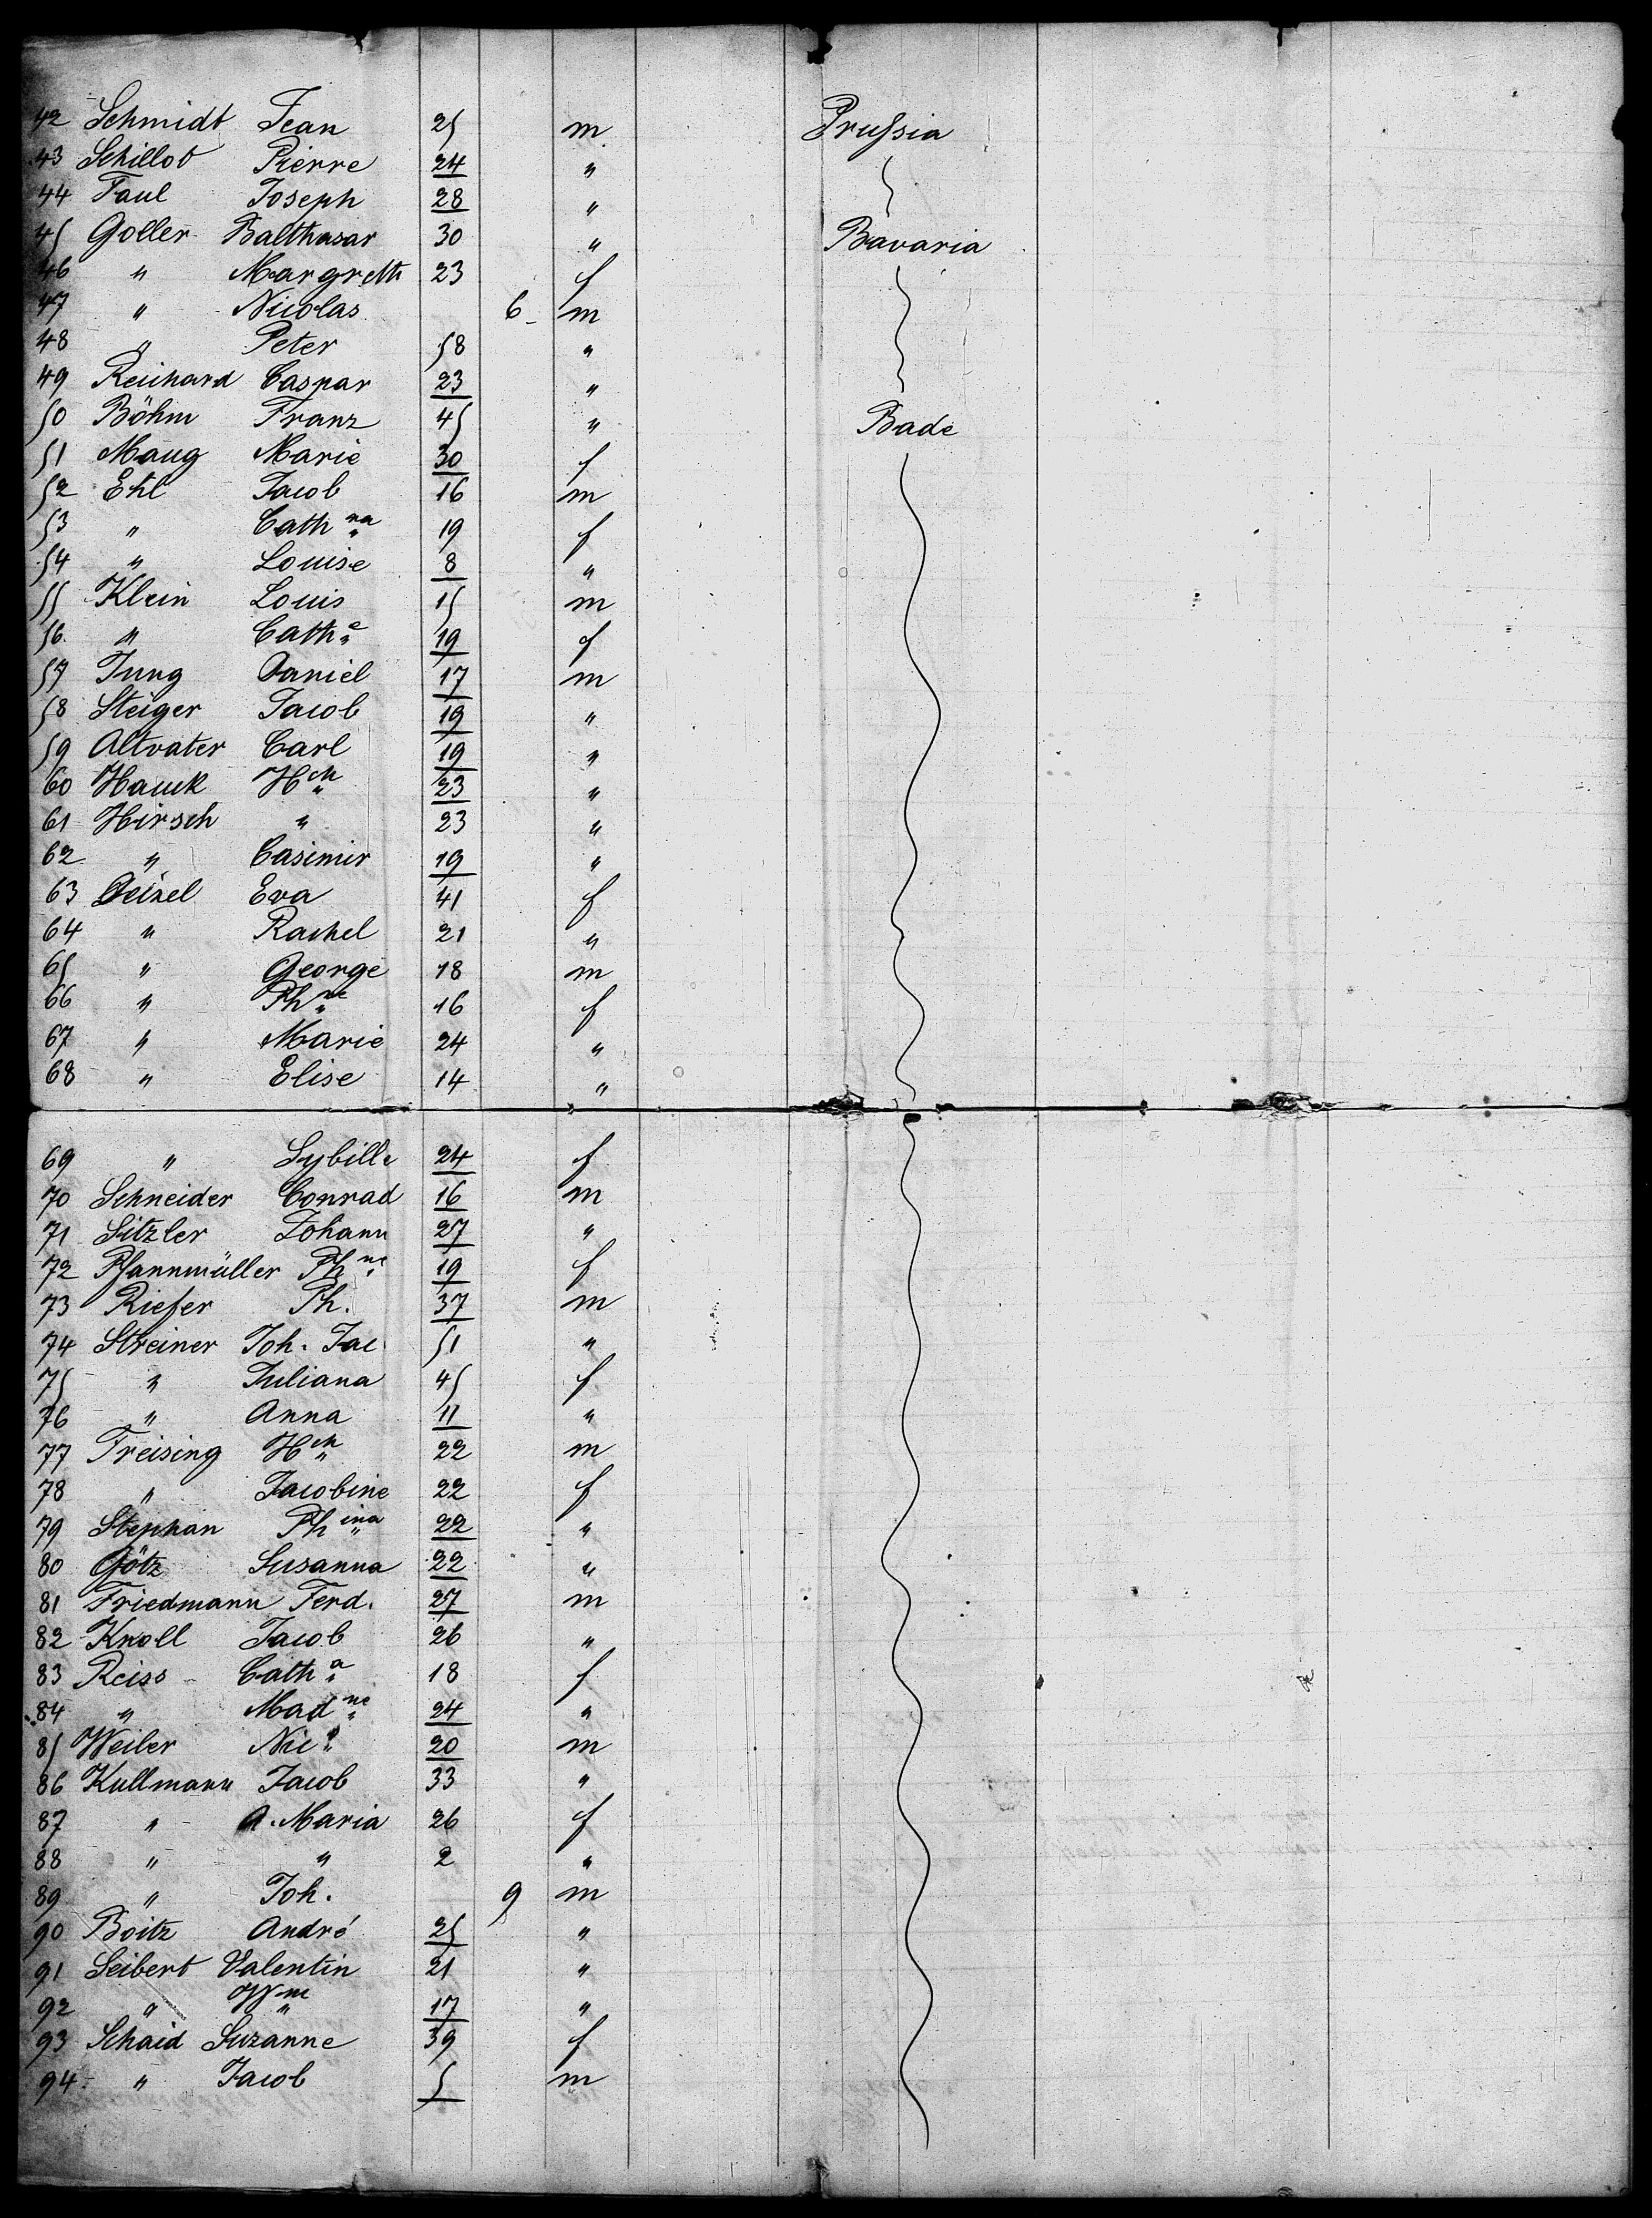 42 Schmidt Jean 25 m Prussia
43 Schillot Pierre 24 "
44 Faul Joseph 28 "
45 Goller Balthasar 30 " Bavaria
46 " Margreth 23 f
47 " Nicolas 6 m
48 " Peter 58 "
49 Reichard Caspar 23 "
50 Böhm Franz 45 " Bade
51 Maug Marie 30 f
52 Ehl Jacob 16 m
53 " Cathna 19 f
54 " Louise 8 "
55 Klein Louis 15 m
56 " Cathe 19 f
57 Jung Daniel 17 m
58 Steiger Jacob 19 "
59 Altvater Carl 19 "
60 Hauck Hch 23 "
61 Hirsch " 23 "
62 " Casimir 19 "
63 Deisel Eva 41 f
64 " Rachel 21 "
65 " George 18 m
66 " Phne 16 f
67 " Marie 24 "
68 " Elise 14 "
69 " Sybille 24 f
70 Schneider Conrad 16 m
71 Sitzler Johann 27 "
72 Pfannmüller Phne 19 f
73 Riefer Ph. 37 m
74 Streiner Joh. Jac. 51 "
75 " Juliana 45 f
76 " Anna 11 "
77 Freising Hch 22 m
78 " Jacobine 22 f
79 Stephan Phina 22 "
80 Götz Susanna 22 "
81 Friedmann Ferd. 27 m
82 Knoll Jacob 26 "
83 Reiss Catha 18 f
84 " Madne 24 "
85 Weiler Nics 20 m
86 Kullmann Jacob 33 "
87 " A. Maria 26 f
88 " " 2 "
89 " Joh. 9 m
90 Boitz André 25 "
91 Seibert Valentin 21 "
92 " Wm 17 "
93 Schaid Suzanne 39 f
94 " Jacob 5 m